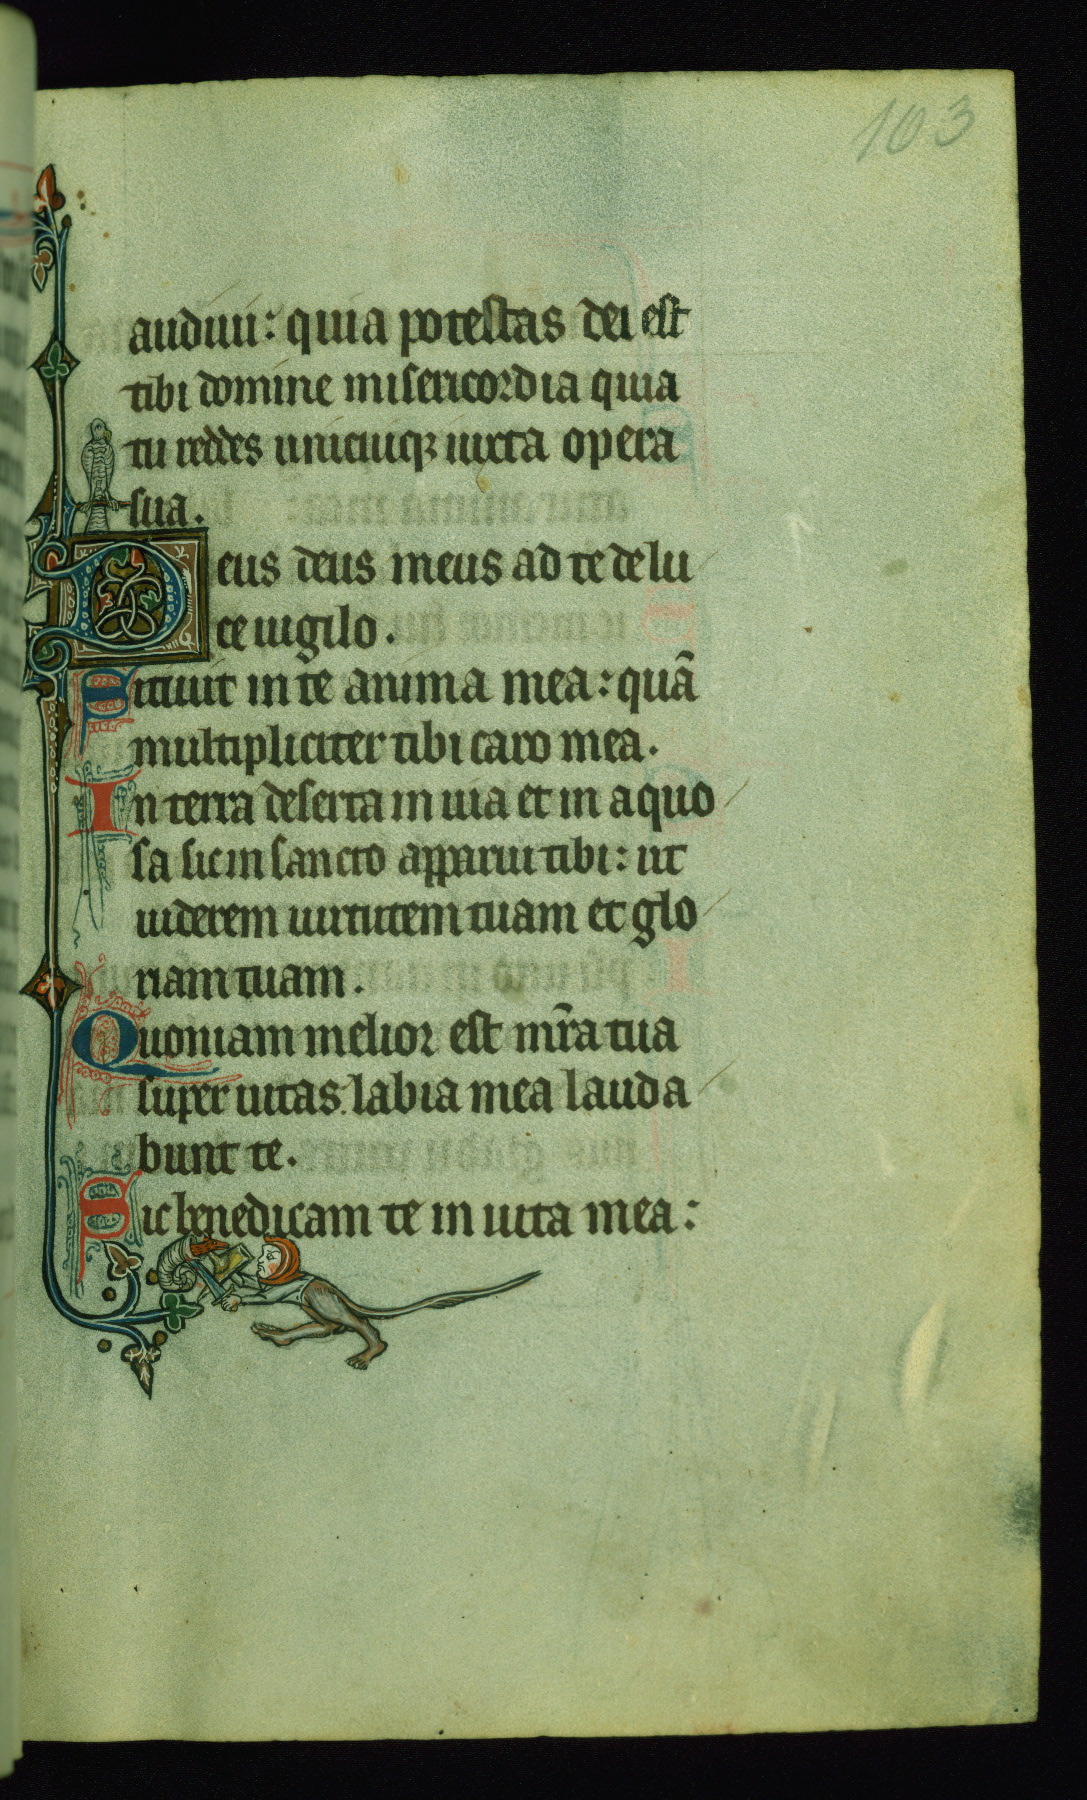 103
audiui: quia potestas dei est
tibi domine misericordia quia
tu reddes unicuiqꝫ iuxta opera
sua.
Deus deus meus ad te de lu
ce uigilo.
Sitiuit in te anima mea: quā
multipliciter tibi caro mea.
In terra deserta in uia et in aquo
sa sic in sancto apparui tibi: ut
uiderem uirtutem tuam et glo
riam tuam.
Quoniam melior est mr̄a tua
super uitas: labia mea lauda
bunt te.
Sic benedicam te in uita mea: